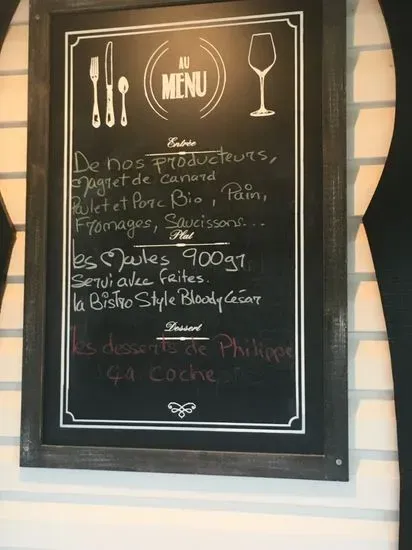 AU
MENU
Entrée
De nos producteurs,
Magret de canard
Poulet et Porc Bio, Pain,
Fromages, Saucissons...
Plat
les Moules 900gr
servi avec frites.
la Bistro Style Bloody César
Dessert
les desserts de Philippe
ça coche